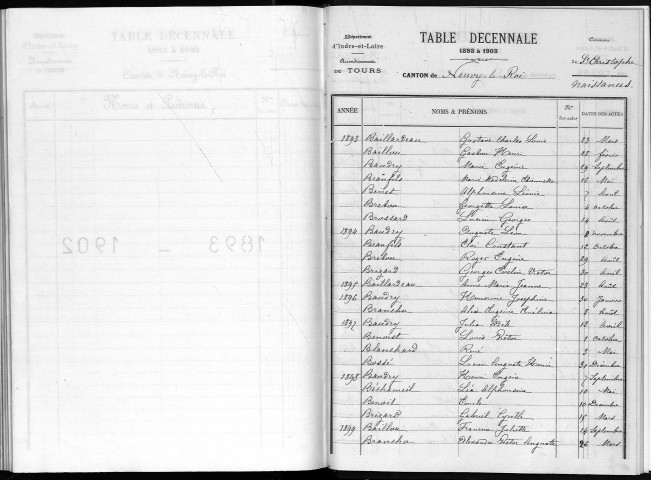 Département
d'Indre-et-Loire
Arrondissement
DE TOURS
TABLE DÉCENNALE
1893 à 1903
CANTON de Neuvy-le-Roi
Commune
de St Christophe
Naissances
ANNÉE NOMS & PRÉNOMS Nos DATES DES ACTES
1893 Baillardeau Gustave Charles 23 Mars
Baillou Henri 28 février
Baudry Marie Eugénie 29 Septembre
Beaufils Marie Madeleine 16 Mai
Benoit Alphonsine 7 Août
Breton Georgette Louise 4 Octobre
Brossard Lucien Georges 14 Août
1894 Baudry Auguste Léon 8 Novembre
Beaufils Eloi Constant 12 Octobre
Breton Roger Eugène 29 Août
Brizard Georges Victor 30 Avril
1895 Baillardeau Anne Marie Jeanne 23 Août
1896 Baudry Honorine Joséphine 30 Janvier
Branchu Alix Eugénie 8 Août
1897 Baudry Julia 12 Avril
Benoist Louis Victor 1 Octobre
Blanchard René 3 Mai
Bossé Lucien Auguste Henri 31 Décembre
1898 Baudry Henri Eugène 7 Septembre
Béchameil Léa Alphonsine 10 Mai
Benoit 10 Décembre
Brizard Gabriel Cyrille 15 Mars
1899 Baillou Francine Juliette 14 Septembre
Branchu Alexandre Victor Auguste 26 Mars